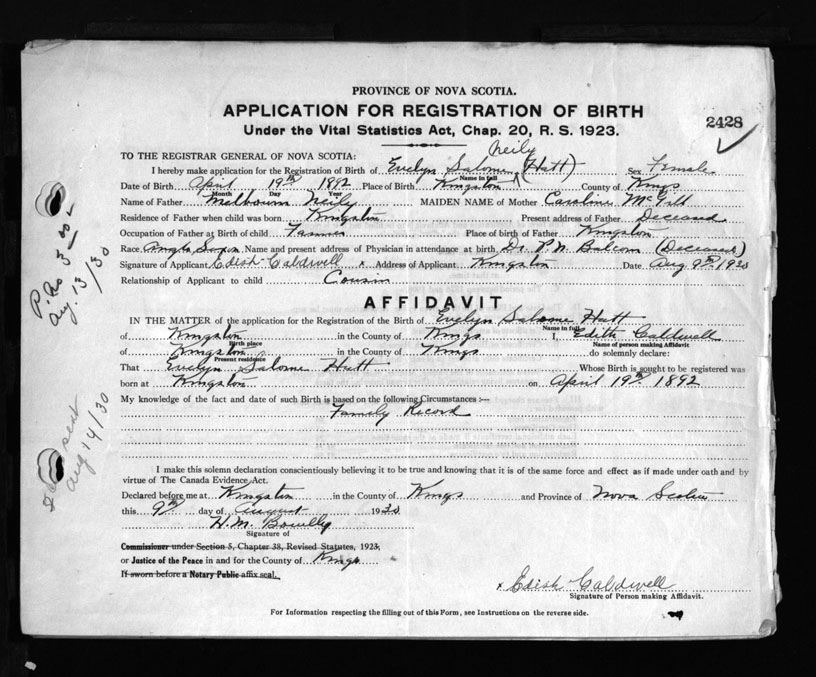 PROVINCE OF NOVA SCOTIA.
APPLICATION FOR REGISTRATION OF BIRTH
2428
Under the Vital Statistics Act, Chap. 20, R. S. 1923.
Neily
TO THE REGISTRAR GENERAL OF NOVA SCOTIA:
I hereby make application for the Registration of Birth of Evelyn Salome (Hatt) Sex Female
Name in full
Date of Birth April 19th 1892 Place of Birth Kingston County of Kings
Month Day Year
Name of Father Melbourn Neily MAIDEN NAME of Mother Caroline McGill
Residence of Father when child was born Kingston Present address of Father Deceased
Occupation of Father at Birth of child Place of birth of Father Kingston
Race Anglo Saxon Name and present address of Physician in attendance at birth Dr. P. N. Balcom (Deceased)
Signature of Applicant Edith Caldwell x Address of Applicant Kingston Date Aug 9th 1930
Relationship of Applicant to child Cousin
AFFIDAVIT
IN THE MATTER of the application for the Registration of the Birth of Evelyn Salome Hatt
Name in full
of Kingston in the County of Kings I, Edith Caldwell
Birth place Name of person making Affidavit
of Kingston in the County of Kings do solemnly declare:
Present residence
That Evelyn Salome Hatt Whose Birth is sought to be registered was
born at Kingston on April 19th 1892
My knowledge of the fact and date of such Birth is based on the following Circumstances :—
Family Record
I make this solemn declaration conscientiously believing it to be true and knowing that it is of the same force and effect as if made under oath and by
virtue of The Canada Evidence Act.
Declared before me at Kingston in the County of Kings and Province of Nova Scotia
this 9th day of August 1930
H. M.
Signature of
Commissioner under Section 5, Chapter 38, Revised Statutes, 1923,
or Justice of the Peace in and for the County of Kings
If sworn before a Notary Public affix seal.
x Edith Caldwell
Signature of Person making Affidavit.
For Information respecting the filling out of this Form, see Instructions on the reverse side.
Aug. 13/30
Aug 14/30